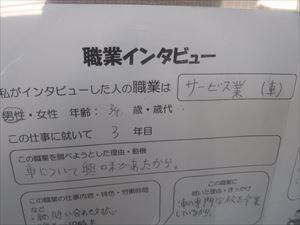 職業インタビュー
私がインタビューした人の職業は サービス業 (車)
男性・女性 年齢: 歳・歳代
この仕事に就いて 3 年目
この職業を調べようとした理由・動機
車について興味があたから。
この職業の仕事内容・特色・労働時間
など
この職業に
就いた理由・きっかけ
車の専門学校を卒業
しているから。